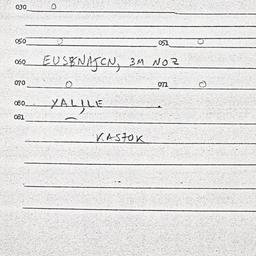 030 0
050 0 051 0
060 EUSBNAJCN, 3M NOZ
070 0 071 0
080 YALILE
081 —
V.ASTOK